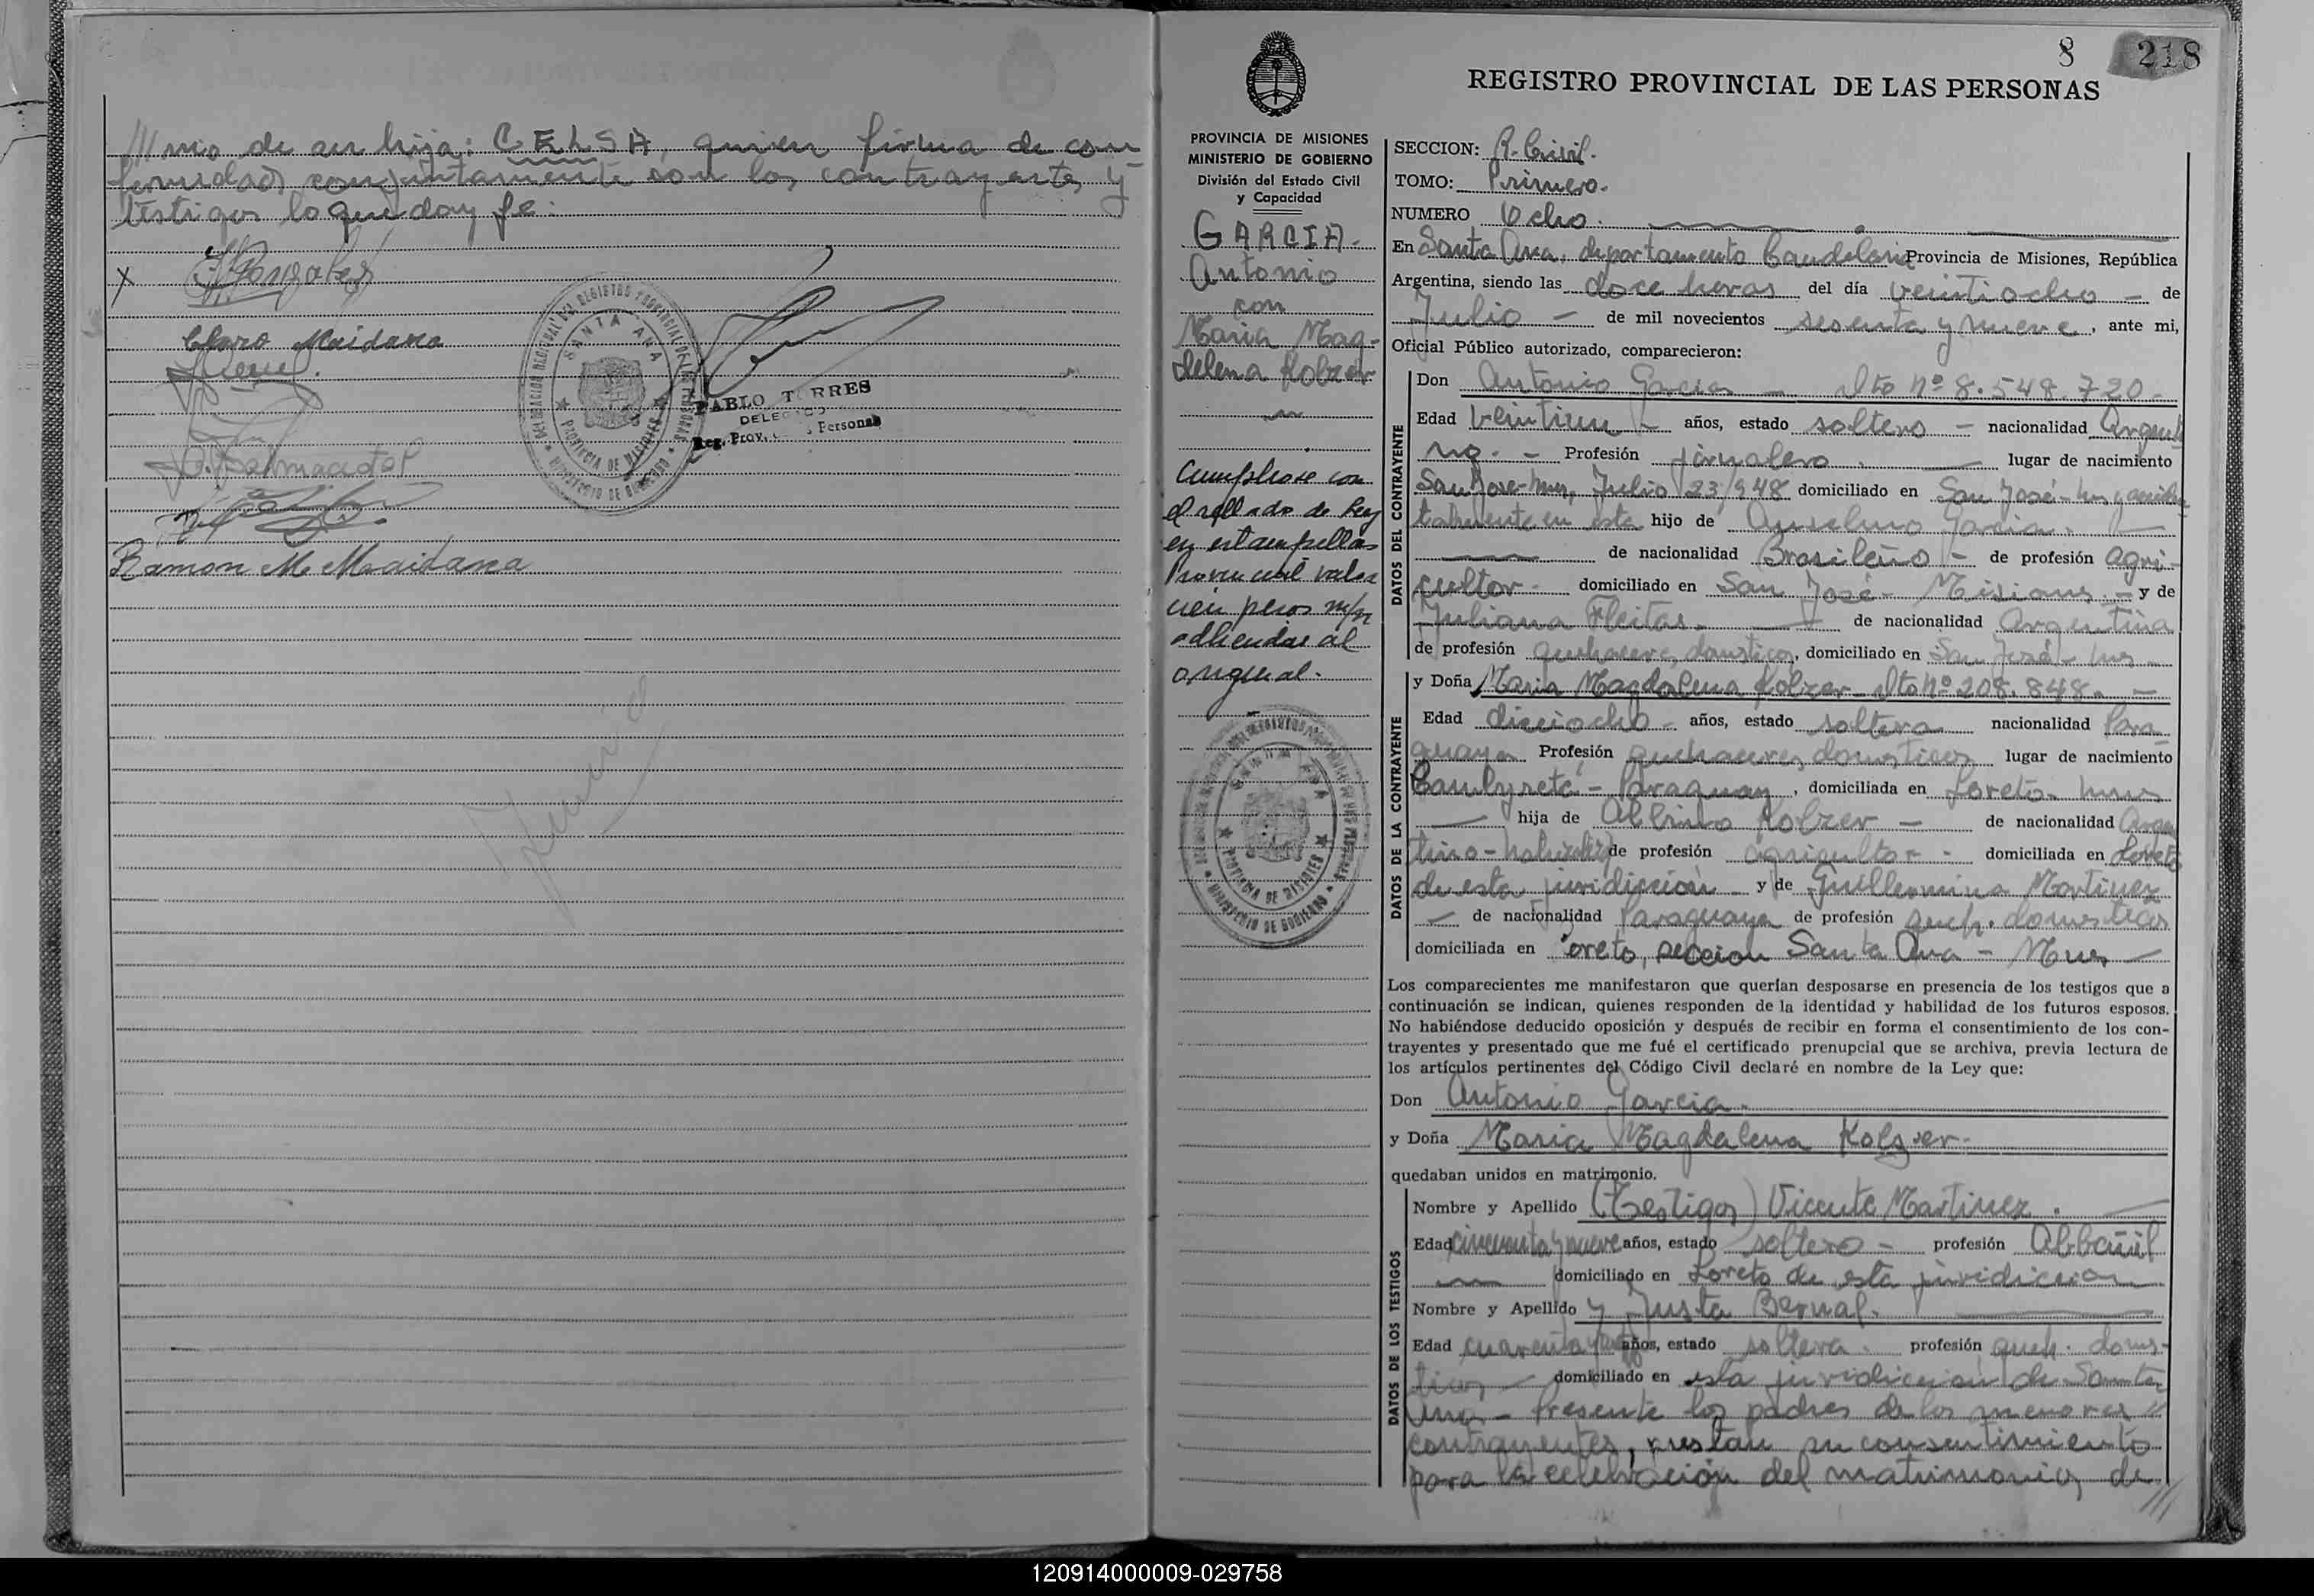 /// nio de su hija: CELSA, quien firma de con
formidad conjuntamente con los contrayentes y
testigos lo que doy fe:
X
Claro Maidana
Ramon M. Maidana
DELEGACION REGIONAL DEL REGISTRO PROVINCIAL DE LAS PERSONAS
SANTA ANA
PROVINCIA DE MISIONES
MINISTERIO DE GOBIERNO
PABLO TORRES
DELEGADO
Reg. Prov. Personas
8 218
REGISTRO PROVINCIAL DE LAS PERSONAS
PROVINCIA DE MISIONES
MINISTERIO DE GOBIERNO
División del Estado Civil
y Capacidad
GARCIA-
Antonio
con
Maria Mag-
delena Kolzer
Cumplirse con
el sellado de Ley
en estampillas
Provincial valor
cien pesos m/n
adheridas al
original.
SANTA ANA
PROVINCIA DE MISIONES
MINISTERIO DE GOBIERNO
SECCION: R. Civil.
TOMO: Primero.
NUMERO Ocho.
En Santa Ana, departamento Candelaria Provincia de Misiones, República
Argentina, siendo las doce horas del día veintiocho - de
Julio - de mil novecientos sesenta y nueve, ante mi,
Oficial Público autorizado, comparecieron:
DATOS DEL CONTRAYENTE
Don Antonio Garcia - Dto nº 8.548.720.-
Edad veintiun - años, estado soltero - nacionalidad Argenti
no. - Profesión jornalero. lugar de nacimiento
San Jose-Mnes, Julio 23/948 domiciliado en San José-Mns y acciden
talmente en esta hijo de Anselmo Garcia.
de nacionalidad Brasileño - de profesión agri-
cultor- domiciliado en San José- Misiones. - y de
Juliana Fleitas. de nacionalidad Argentina
de profesión quehaceres domesticos, domiciliado en San José- Mns -
DATOS DE LA CONTRAYENTE
y Doña Maria Magdalena Kolzer- Dto nº 208.848. -
Edad dieciocho - años, estado soltera nacionalidad Para
guaya Profesión quehaceres domesticos lugar de nacimiento
Cambyretá - Paraguay, domiciliada en Loreto- Mnes
hija de Albino Kolzer - de nacionalidad Argen
tino-naturaliz de profesión agricultor - domiciliada en Loreto
de esta juridiccion - y de Guillermina Martinez
- de nacionalidad Paraguaya de profesión queh. domesticos
domiciliada en oreto, seccion Santa Ana - Mnes -
Los comparecientes me manifestaron que querían desposarse en presencia de los testigos que a
continuación se indican, quienes responden de la identidad y habilidad de los futuros esposos.
No habiéndose deducido oposición y después de recibir en forma el consentimiento de los con-
trayentes y presentado que me fué el certificado prenupcial que se archiva, previa lectura de
los artículos pertinentes del Código Civil declaré en nombre de la Ley que:
Don Antonio Garcia.
y Doña Maria Magdalena Kolzer-
quedaban unidos en matrimonio.
DATOS DE LOS TESTIGOS
Nombre y Apellido (Testigos) Vicente Martinez.
Edad cincuenta y nueve años, estado soltero - profesión Albañil
domiciliado en Loreto de esta juridiccion
Nombre y Apellido y Justa Bernal.
Edad cuarenta y años, estado soltera. profesión queh. domes-
ticos - domiciliado en esta juridiccion de Santa
Ana.- Presente los padres de los menores //
contrayentes, prestan su consentimiento
para la celebración del matrimonio, de
///
120914000009-029758